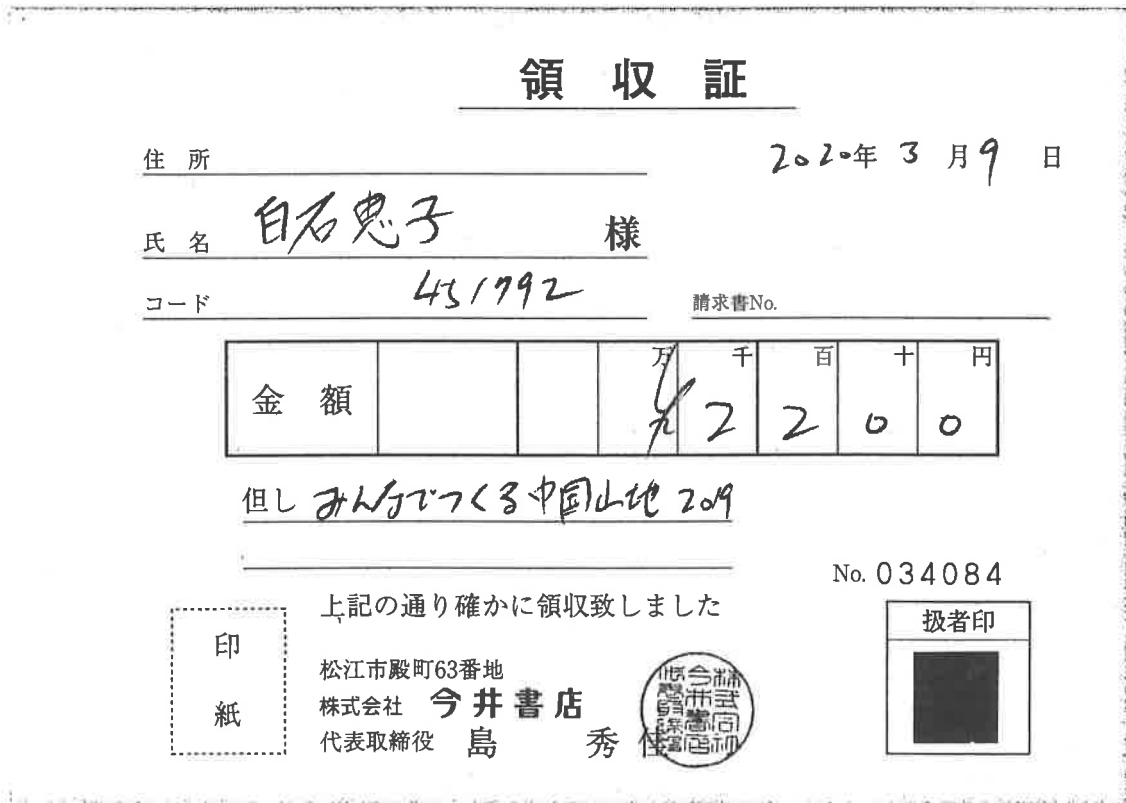 領収証
2020年3月9日
住所
氏名 白石恵子 様
コード 451792
請求書No.
金額 万 千 百 十 円
2 2 0 0
但し みんなでつくる中国山地 2019
No. 034084
上記の通り確かに領収致しました
扱者印
印紙
松江市殿町63番地
株式会社 今井書店
代表取締役 島 秀佳